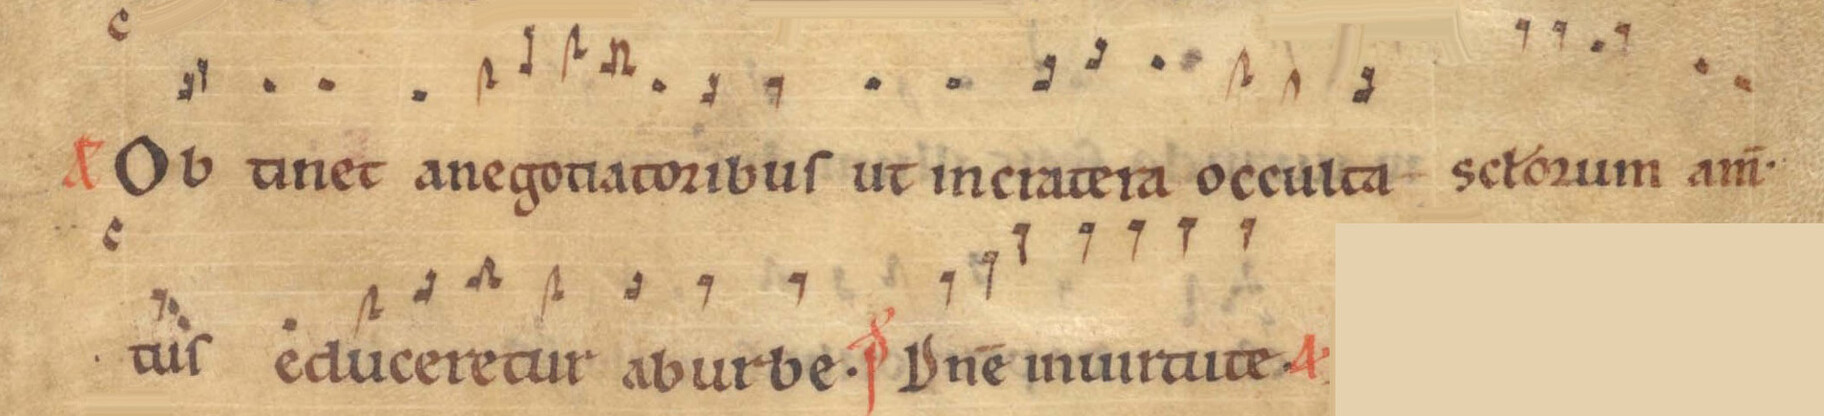 A Ob tinet anegotiatoribus ut incratera occulta sctorum am̄.
tuis educeretur aburbe. P Dnē inuirtute. A